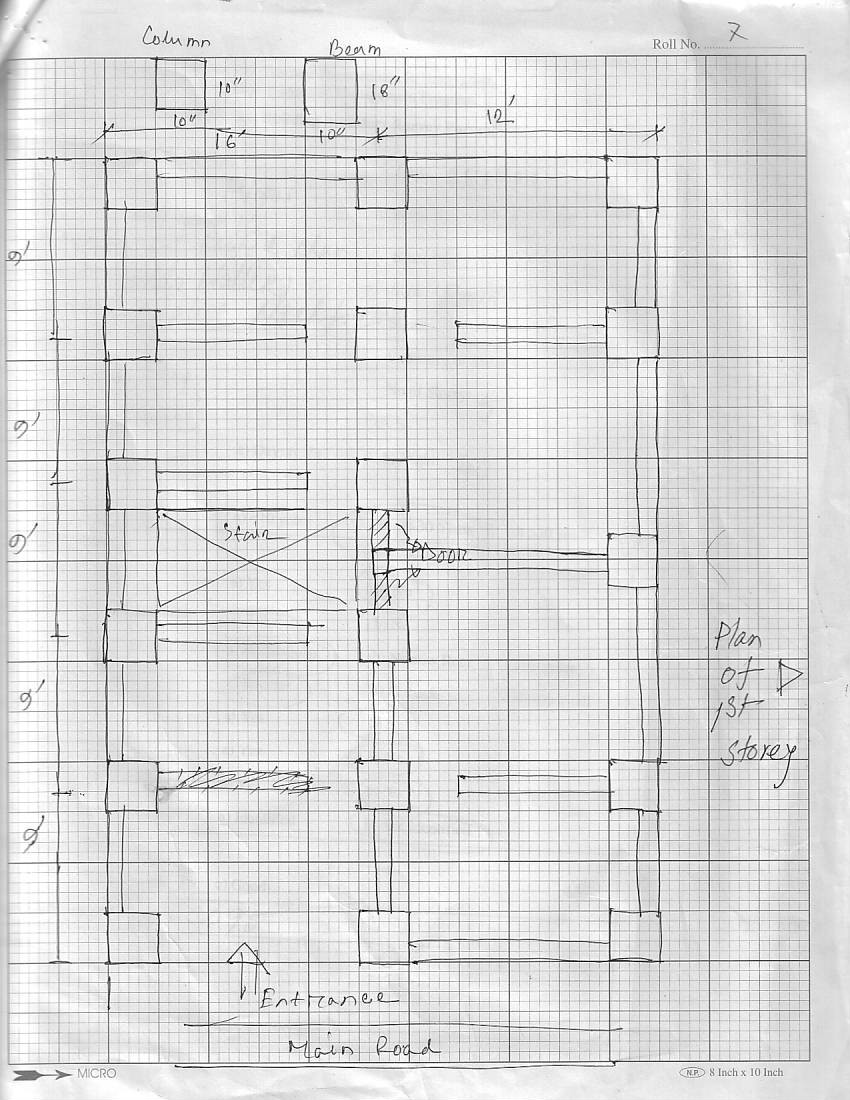 Column
Beam
Roll No. 7
10"
18"
10"
10"
16'
12'
9'
9'
Stair
9'
Door
Plan
of
1st
storey
9'
9'
Entrance
Main Road
MICRO
N.P. 8 Inch x 10 Inch